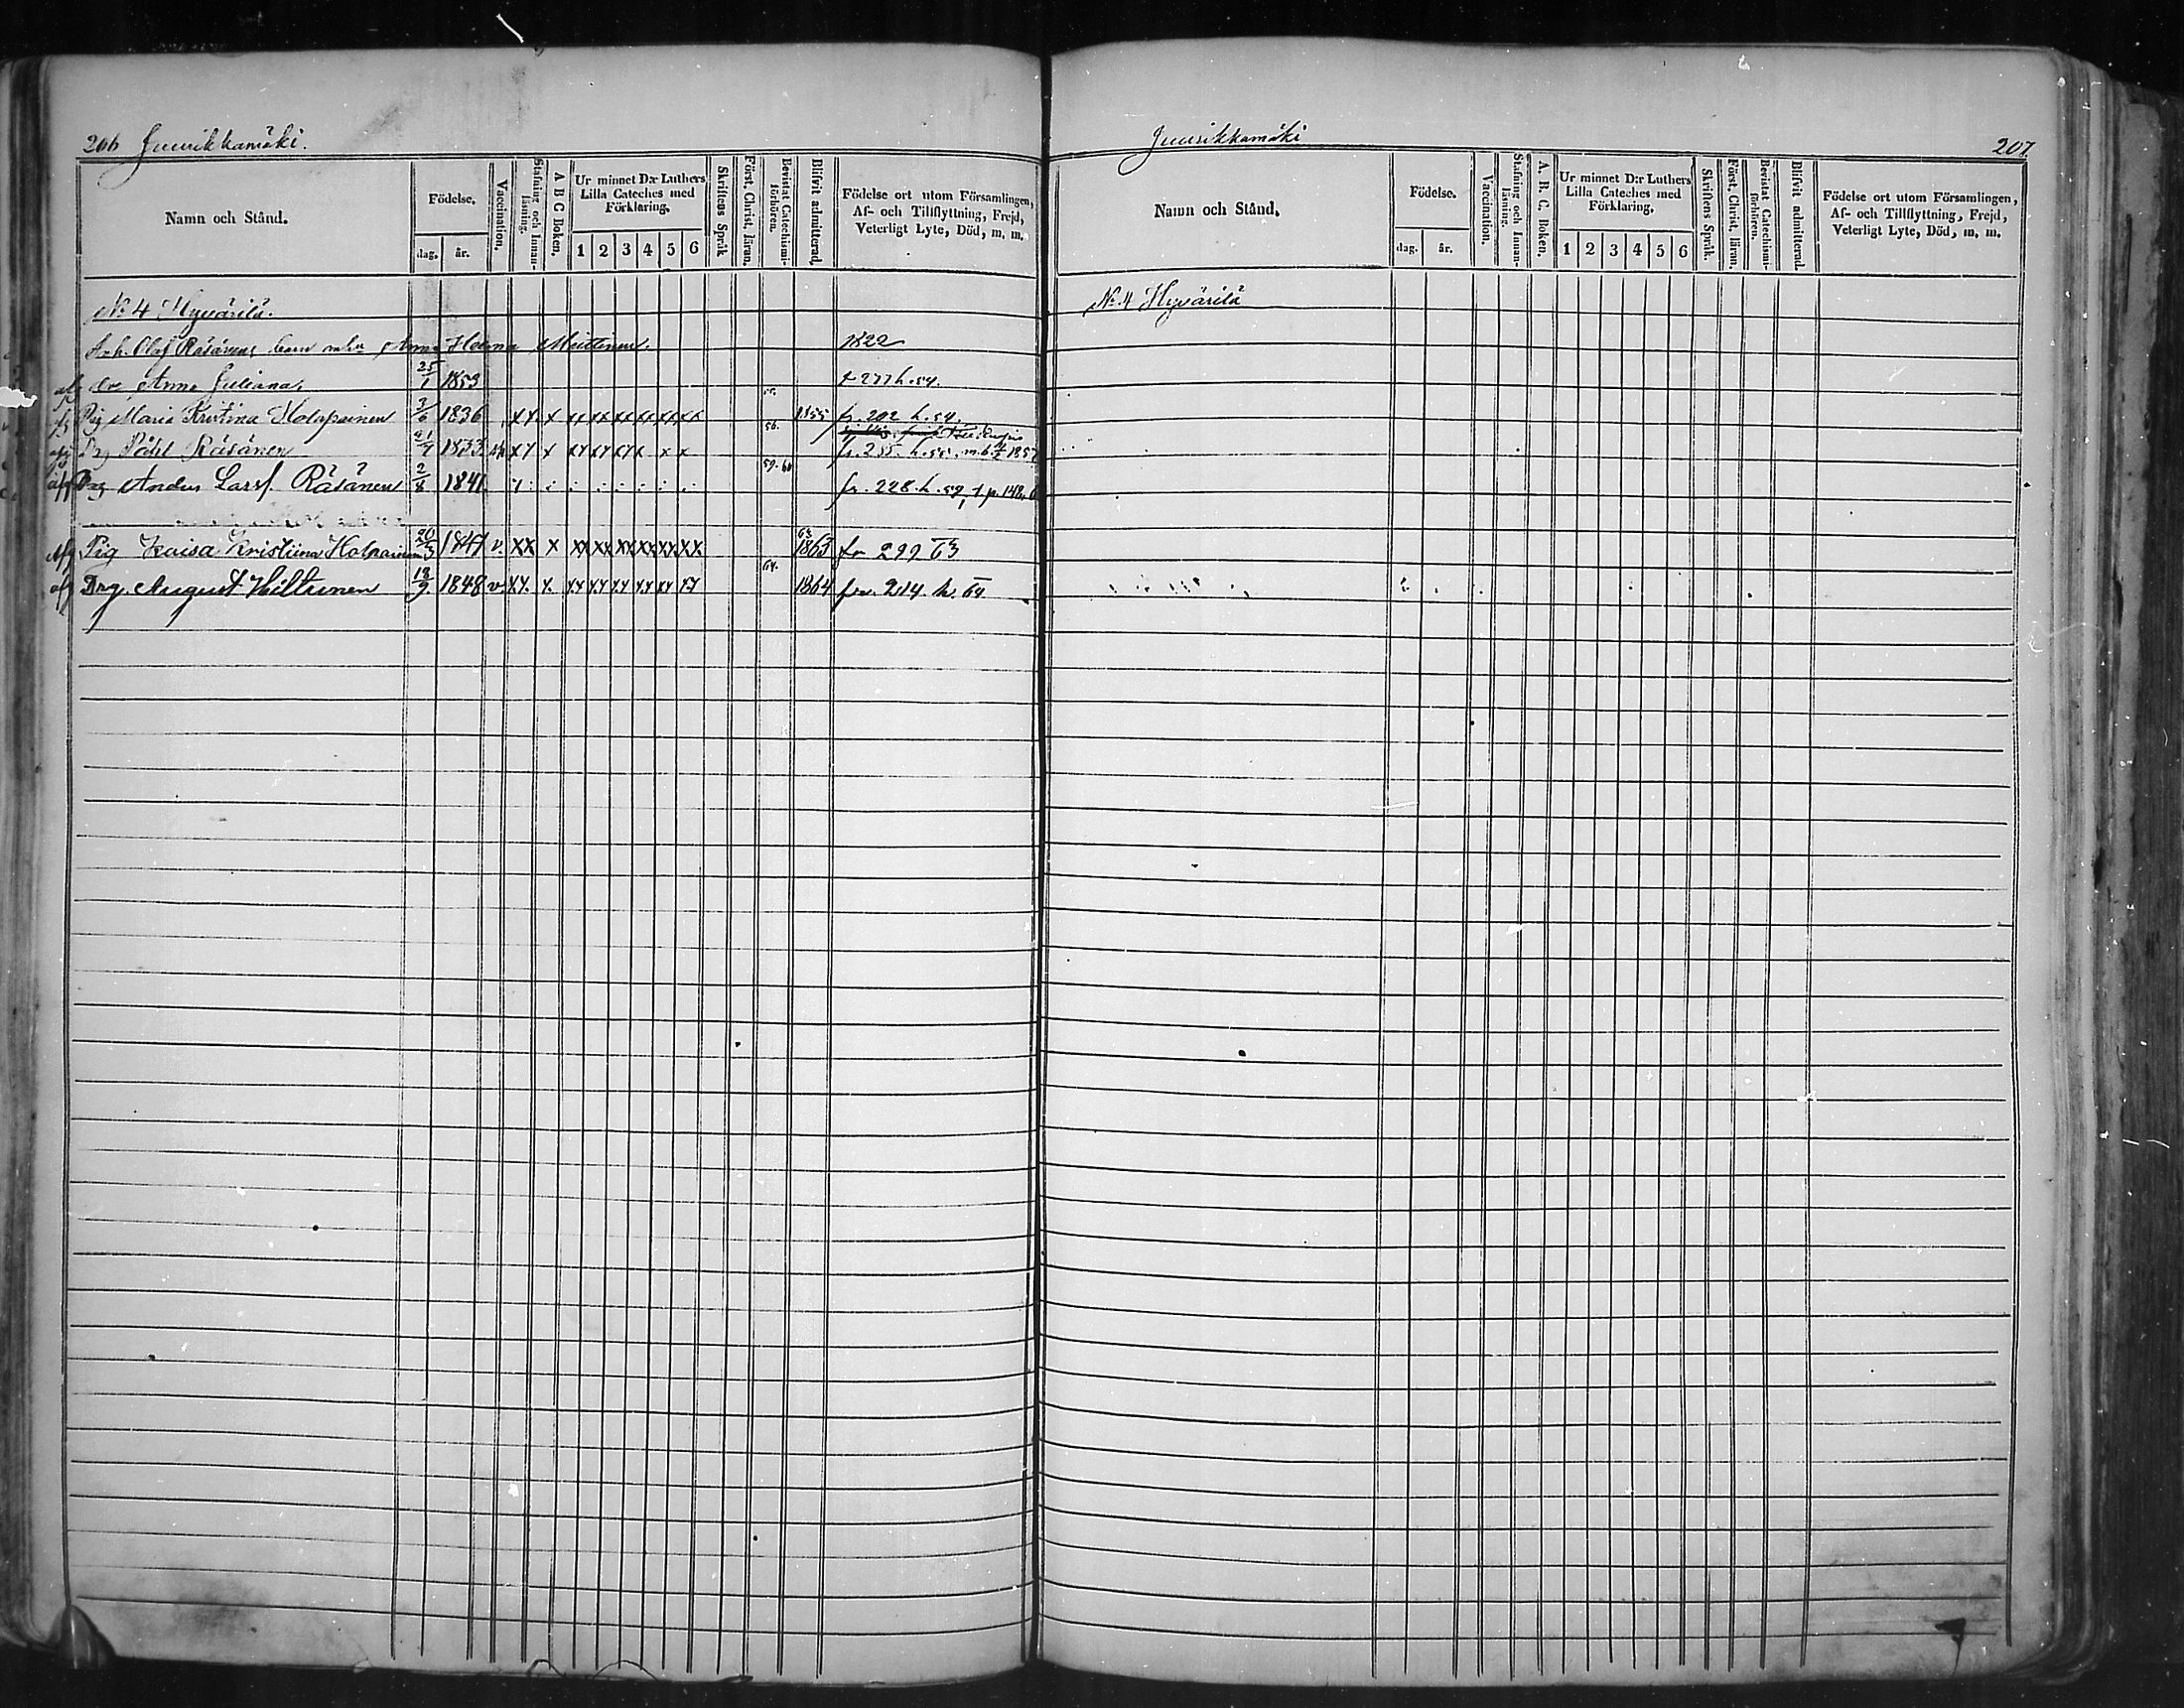 206 Juurikkamäki.
Namn och Stånd.
Födelse.
dag. år.
Vaccination.
Stafning och Innanläsning.
A B C Boken.
Ur minnet D:r Luthers Lilla Cateches med Förklaring.
1 2 3 4 5 6
Skriftens Språk
Först. Christ. läran.
Bevistat Catechismiförhören.
Blifvit admitterad.
Födelse ort utom Församlingen, Af- och Tillflyttning, Frejd, Veterligt Lyte, Död, m. m.
No 4 Hyvärilä.
Olof Räsänens barn Anna Miettinen. 1822
Anna Juliana. 25/1 1853 277 h. 54.
Pig Maria Kristina Holopainen 3/6 1836 x x x xx xx xx xx xx xx 55. 1855 fr. 202 h. 54.
Påhl Räsänen 1833 x x x x x 56. fr. 255. h. 55. 1857
Drg Anders Larss. Räsänen 2/8 1841 59. 60 fr. 228. h. 59, p. 148.
afg Pig Kaisa Kristiina Holopainen 20/3 1847 v. xx x xx xx xx xx xx xx 63 1863 fr 299 63
afg Drg. August Hiltunen 12/9 1848 v. xx. x. xx xx xx xx xx xx 64. 1864 fr. 214. h. 64
Juurikkamäki 207.
Namn och Stånd.
Födelse.
dag. år.
Vaccination.
Stafning och Innanläsning.
A. B. C. Boken.
Ur minnet D:r Luthers Lilla Cateches med Förklaring.
1 2 3 4 5 6
Skriftens Språk.
Först. Christ. läran.
Bevistat Catechismiförhören.
Blifvit admitterad.
Födelse ort utom Församlingen, Af- och Tillflyttning, Frejd, Veterligt Lyte, Död, m. m.
No. 4 Hyvärilä